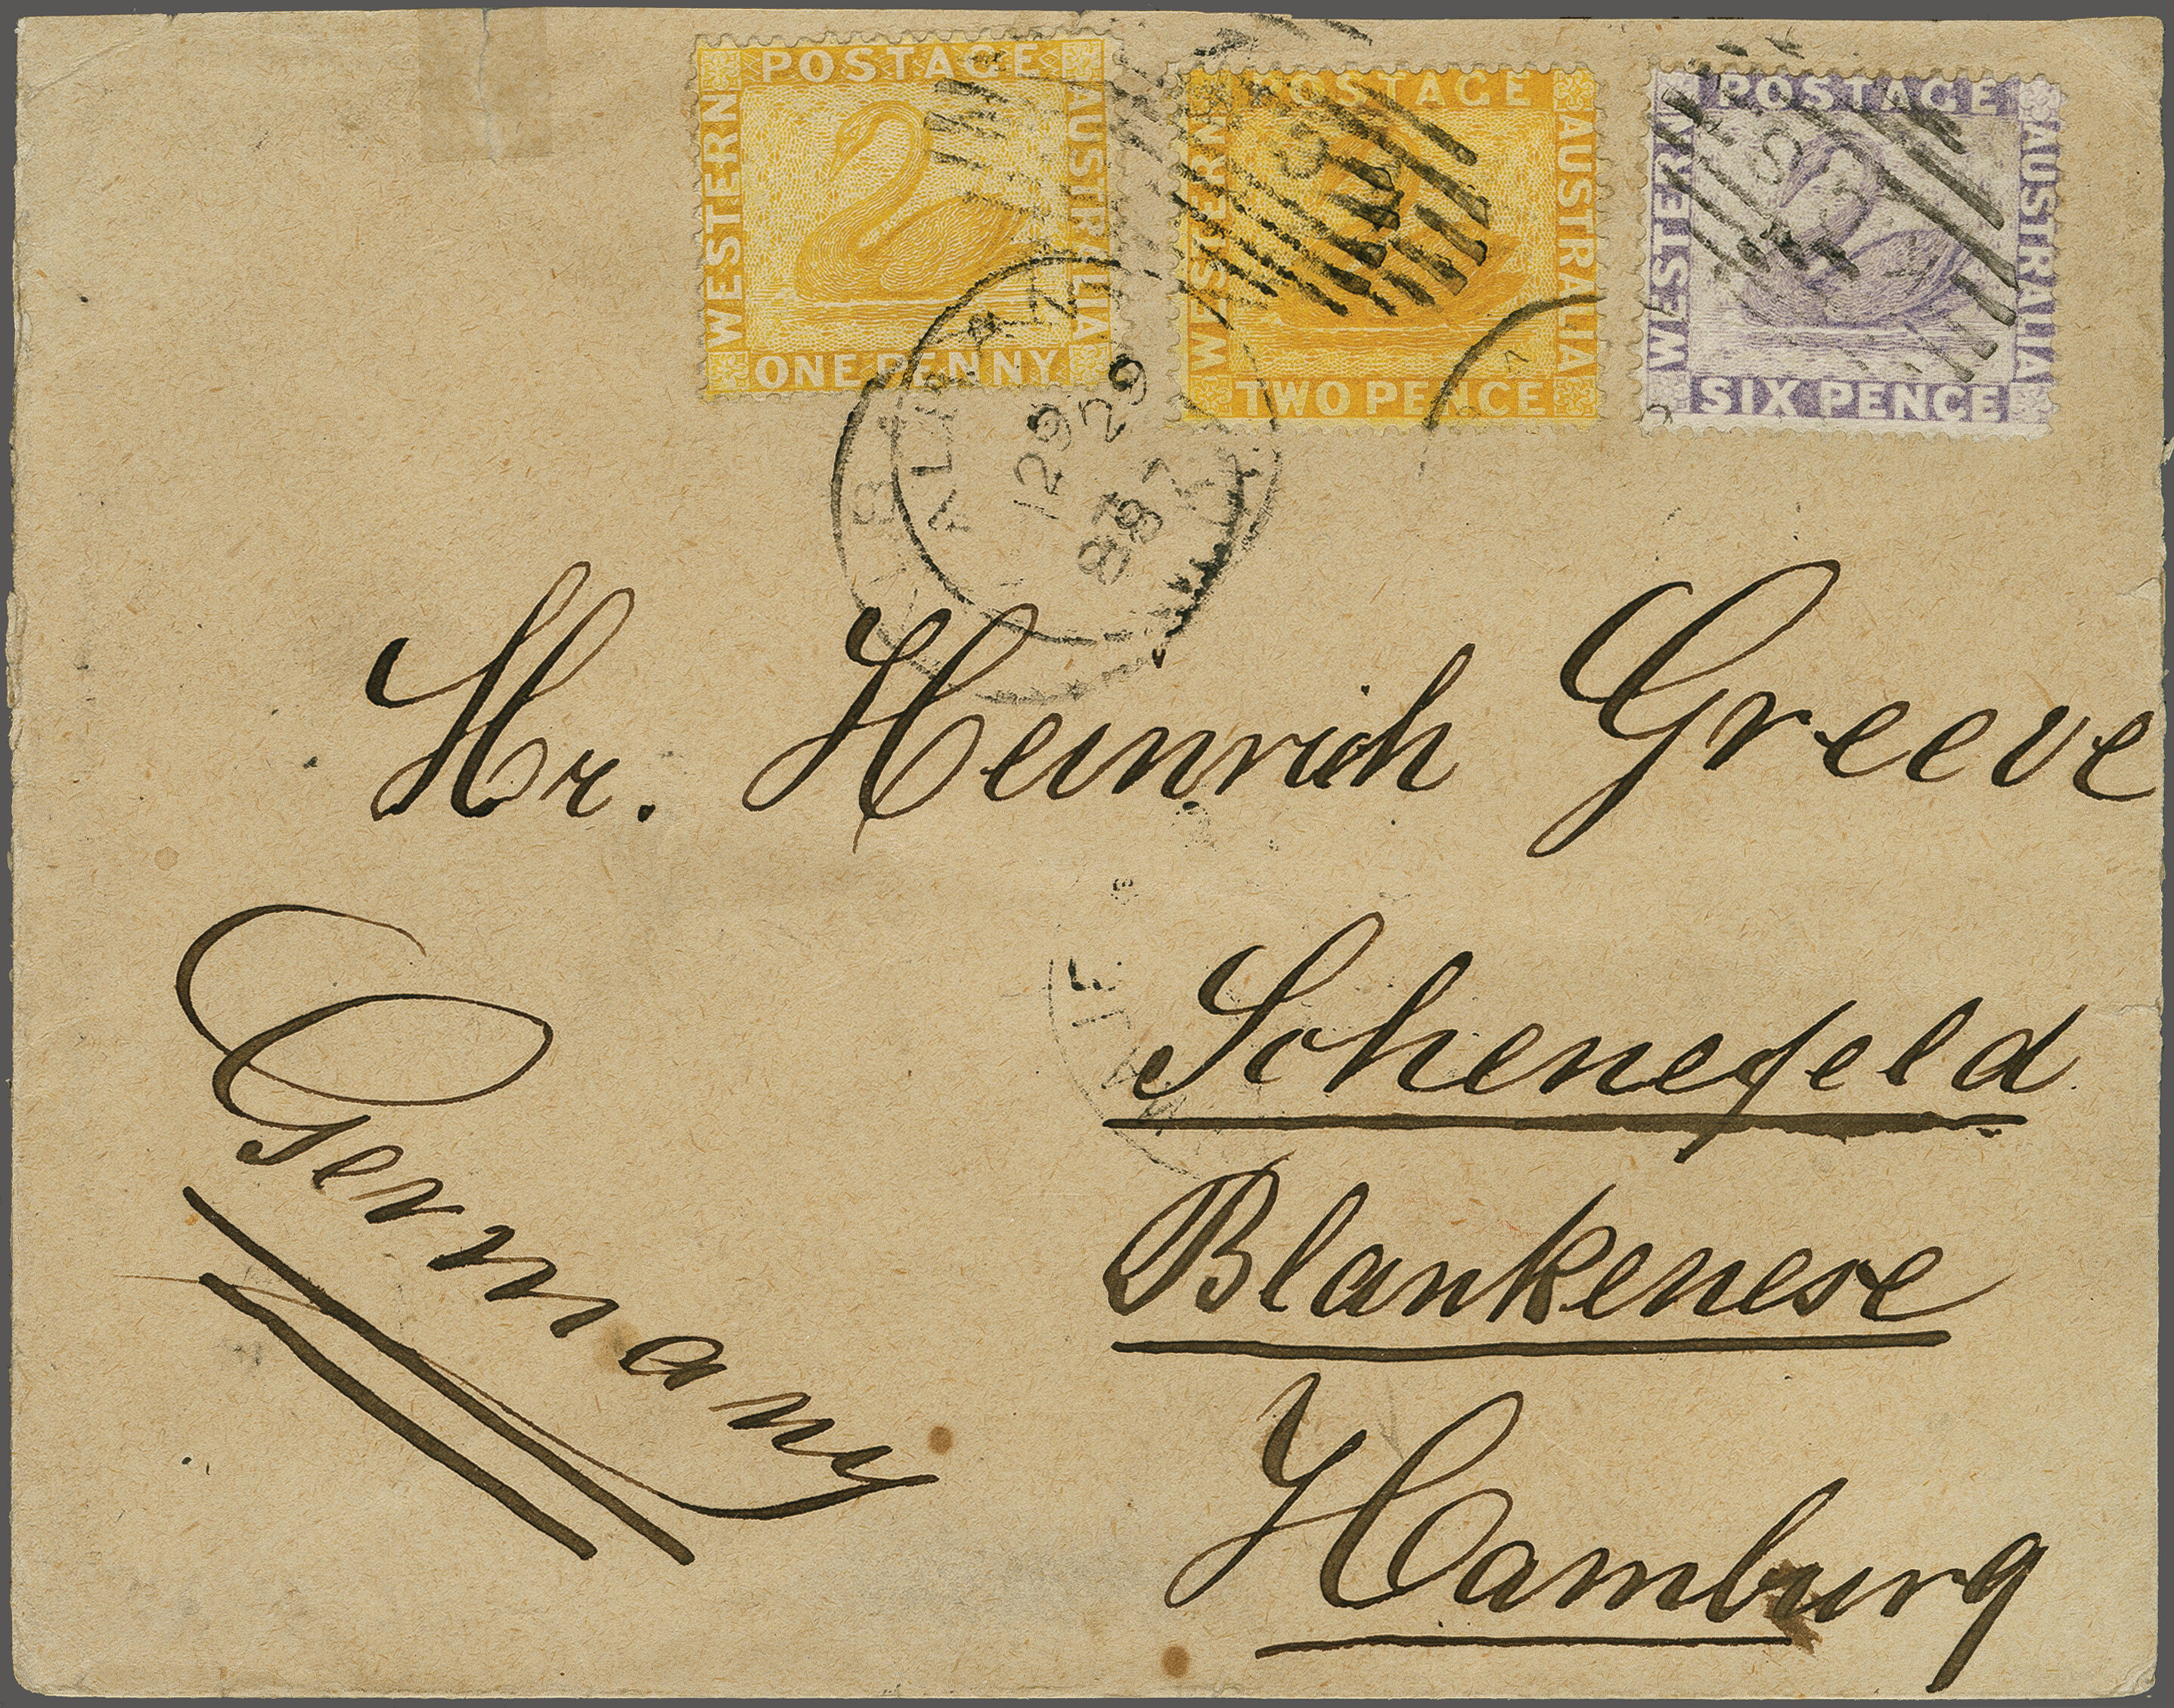 POSTAGE
WESTERN
AUSTRALIA
ONE PENNY
POSTAGE
WESTERN
AUSTRALIA
TWO PENCE
POSTAGE
WESTERN
AUSTRALIA
SIX PENCE
29
29
Mr. Heinrich Greeve
Schenefeld
Blankenese
Hamburg
Germany